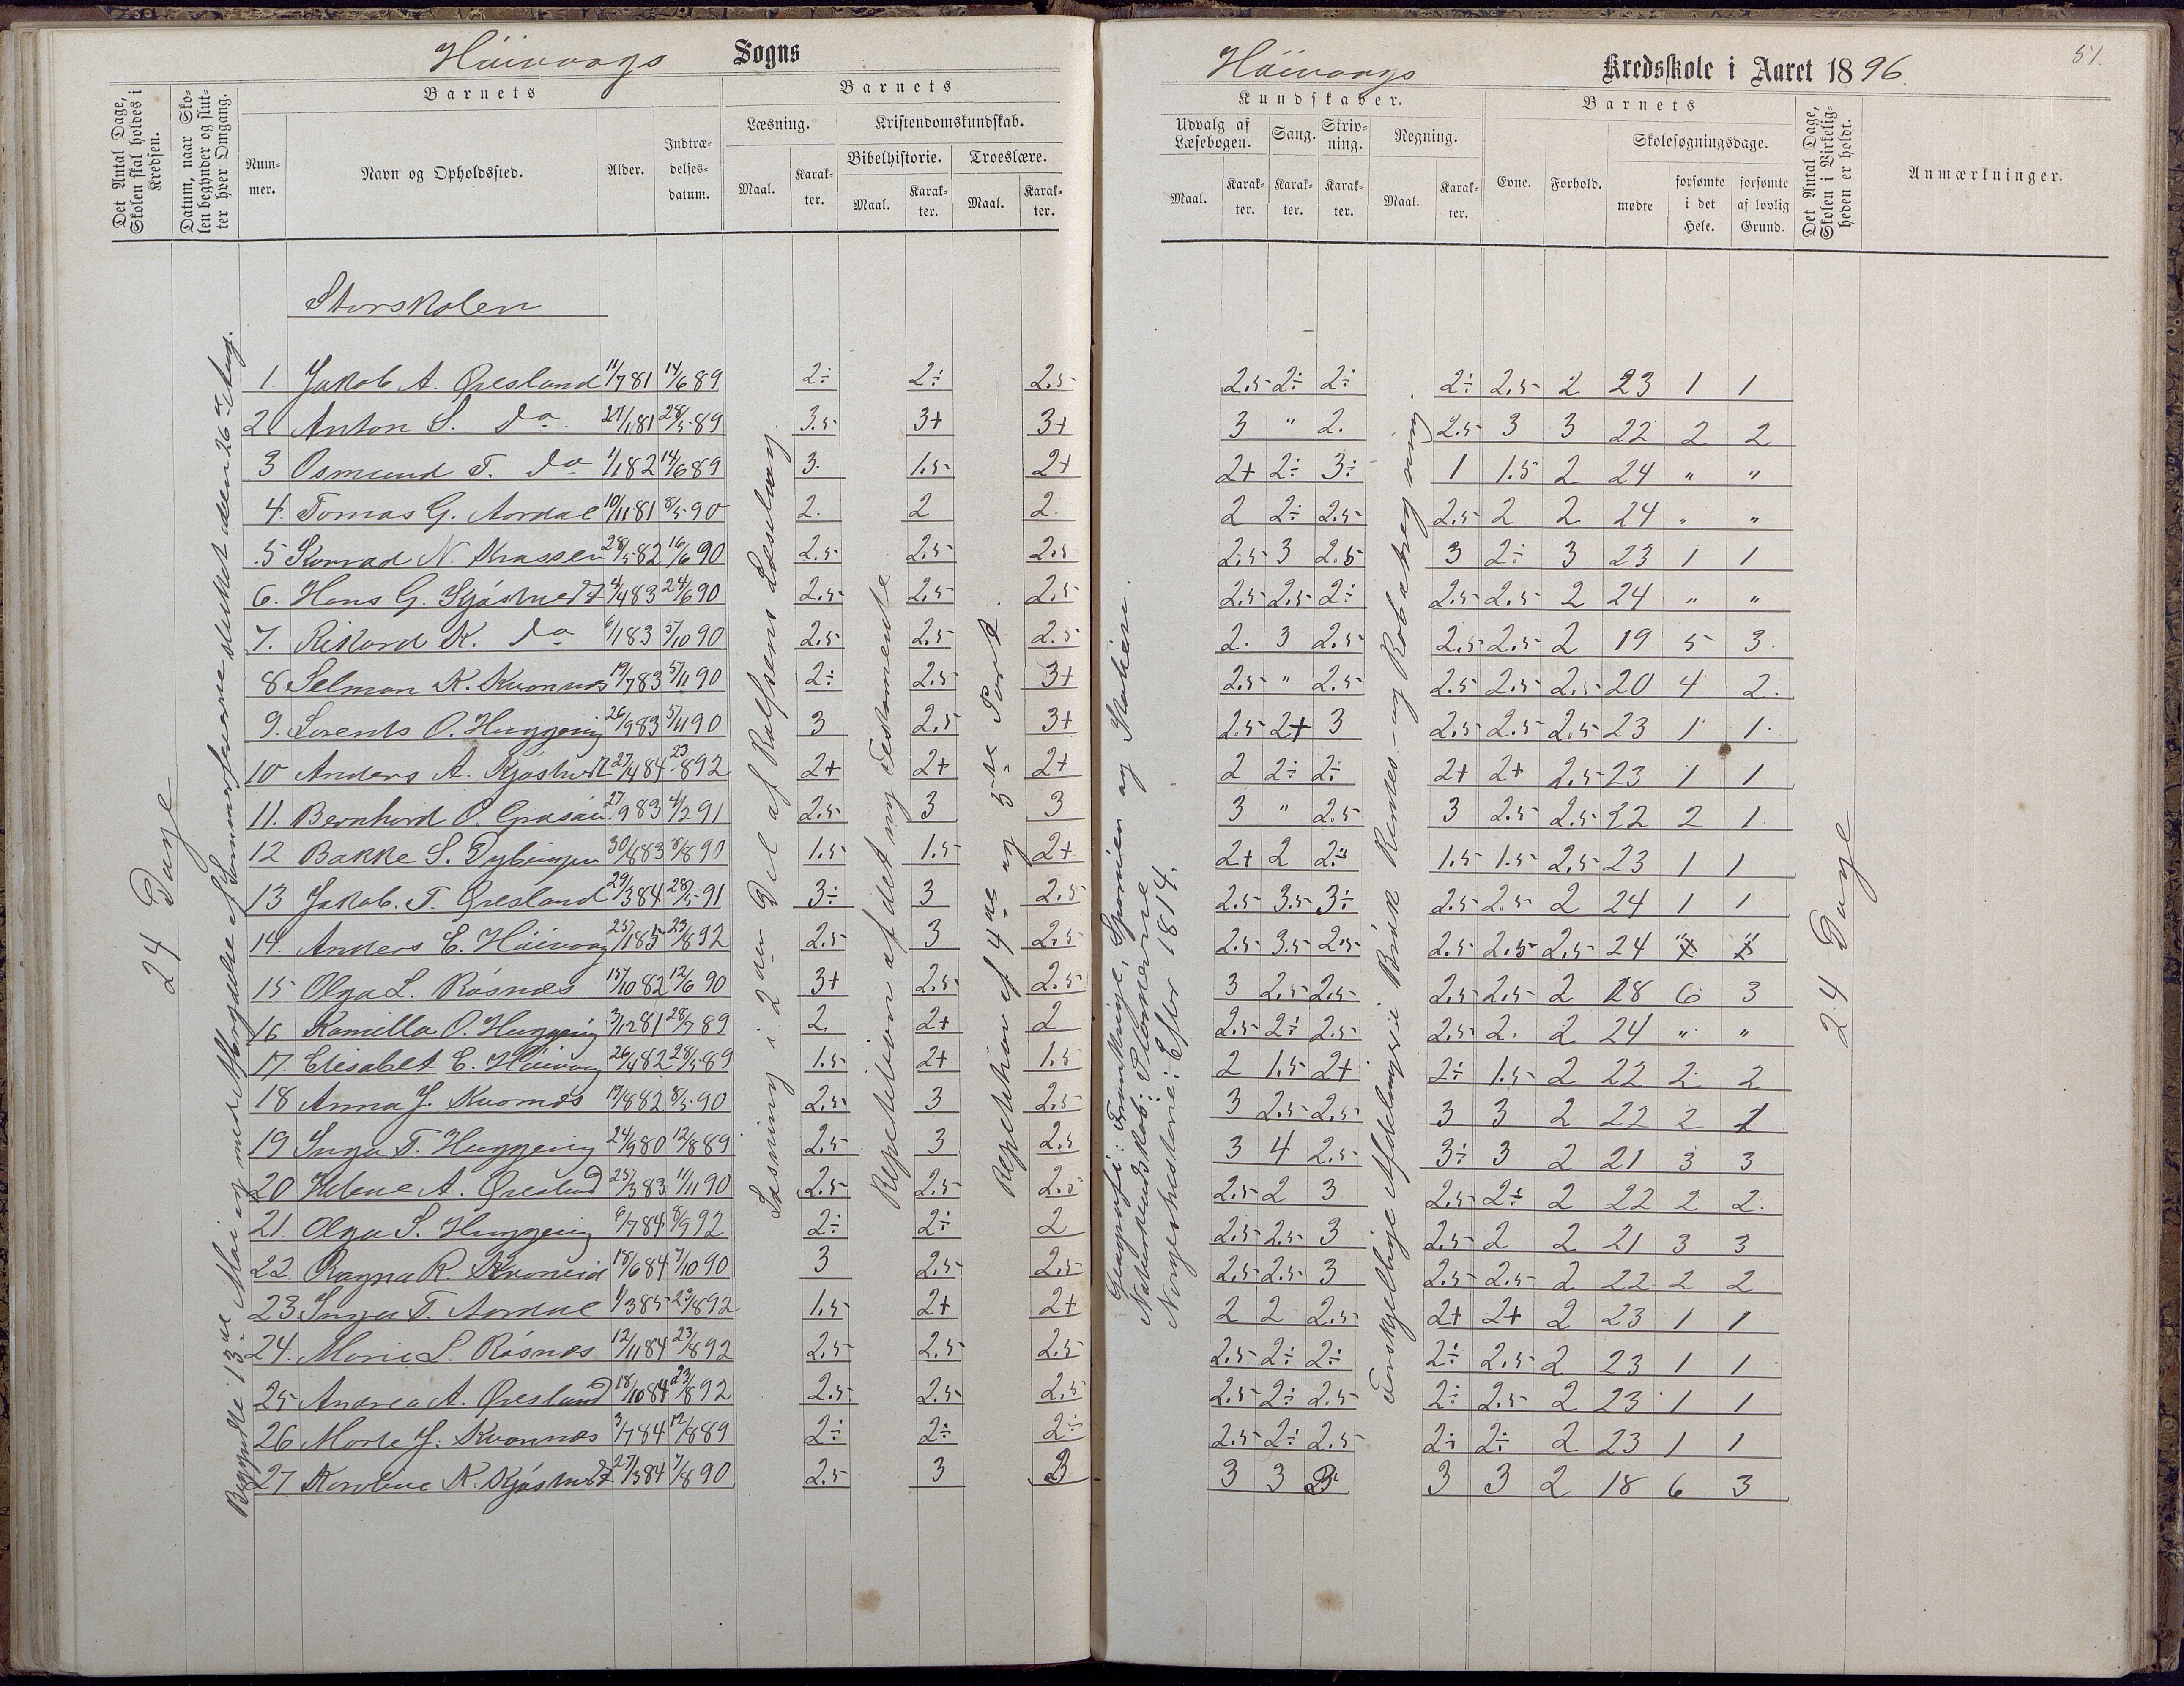 Höivaags Sogns
Det Antal Dage, Skolen skal holdes i Kredsen.
Datum, naar Skolen begynder og slutter hver Omgang.
Barnets
Nummer.
Navn og Opholdssted.
Alder.
Indtrædelsesdatum.
Barnets
Læsning.
Maal.
Karakter.
Kristendomskundskab.
Bibelhistorie.
Maal.
Karakter.
Troeslære.
Maal.
Karakter.
24 Dage
Begyndte 13de Mai og med Afbrydelse af Sommerferierne sluttet den 26de Aug.
Læsning i 2den Del af Rolfsens Læsebog.
Repetition af det ny Testamente
Repetition af 4de og 5te Part.
Storskolen
1. Jakob A. Øresland 11/7 81 14/6 89 2÷ 2÷ 2.5
2. Anton S. do 27/1 81 28/5 89 3.5 3+ 3+
3 Osmund T. do 1/1 82 14/6 89 3. 1.5 2+
4. Tomas G. Aardal 10/11 81 8/5 90 2. 2 2.
5 Konrad N. 28/5 82 16/6 90 2.5 2.5 2.5
6. Hans G. 4/4 83 24/6 90 2.5 2.5 2.5
7. Rikard K. do 6/1 83 5/10 90 2.5 2.5 2.5
8 Selman K. Kvannes 19/7 83 5/11 90 2÷ 2.5 3+
9. Lorents O. Huggenig 26/9 83 5/11 90 3 2.5 3+
10 Anders A. 27/4 84 23/8 92 2+ 2+ 2+
11. Bernhard O. 27/9 83 4/2 91 2.5 3 3
12 Bakke S. Dybingen 30/8 83 8/8 90 1.5 1.5 2+
13 Jakob. T. Øresland 29/3 84 28/5 91 3÷ 3 2.5
14. Anders E. Höivaag 25/1 85 23/8 92 2.5 3 2.5
15 Olga L. Råsnæs 15/10 82 12/6 90 3+ 2.5 2.5
16 Kamilla O. Huggenig 3/12 81 28/7 89 2 2+ 2
17. Elisabet E. Höivaag 26/4 82 28/5 89 1.5 2+ 1.5
18 Anna J. Kvannes 19/8 82 8/5 90 2.5 3 2.5
19 Inga T. Huggenig 24/9 80 12/8 89 2.5 3 2.5
20 Helene A. Øresland 25/3 83 11/11 90 2.5 2.5 2.5
21. Olga S. Huggenig 6/7 84 8/9 92 2÷ 2÷ 2
22. Ragna R. 18/6 84 7/10 90 3 2.5 2.5
23 Inga T. Aardal 1/3 85 23/8 92 1.5 2+ 2+
24. Marie L. Råsnæs 12/11 84 23/8 92 2.5 2.5 2.5
25 Andrea A. Øresland 18/10 84 23/8 92 2.5 2.5 2.5
26 Marte J. Kvannes 3/7 84 12/8 89 2÷ 2÷ 2÷
27 Karoline K. 27/3 84 7/8 90 2.5 3 3
Höivaags Kredsskole i Aaret 1896.
51.
Kundskaber.
Udvalg af Læsebogen.
Maal.
Karakter.
Sang.
Karakter.
Skrivning.
Karakter.
Regning.
Maal.
Karakter.
Barnets
Evne.
Forhold.
Skolesøgningsdage.
mødte
forsømte i det Hele.
forsømte af lovlig Grund.
Det Antal Dage, Skolen i Virkeligheden er holdt.
Anmærkninger.
Geografi: Frankrige, Spanien og Italien.
Naturkundskab: Planeterne
Norgeshistorie: Efter 1814.
Forskjellige Afdelinger i Brøk Rentes- og Rabatregning.
24 Dage
2.5 2÷ 2÷ 2÷ 2.5 2 23 1 1
3 " 2. 2.5 3 3 22 2 2
2+ 2÷ 3÷ 1 1.5 2 24 " "
2 2÷ 2.5 2.5 2 2 24 " "
2.5 3 2.5 3 2÷ 3 23 1 1
2.5 2.5 2÷ 2.5 2.5 2 24 " "
2. 3 2.5 2.5 2.5 2 19 5 3.
2.5 " 2.5 2.5 2.5 2.5 20 4 2.
2.5 2+ 3 2.5 2.5 2.5 23 1 1.
2 2÷ 2÷ 2+ 2+ 2.5 23 1 1
3 " 2.5 3 2.5 2.5 22 2 1
2+ 2 2÷ 1.5 1.5 2.5 23 1 1
2.5 3.5 3÷ 2.5 2.5 2 24 1 1
2.5 3.5 2.5 2.5 2.5 2.5 24 " "
3 2.5 2.5 2.5 2.5 2 18 6 3
2.5 2÷ 2.5 2.5 2. 2 24 " "
2 1.5 2+ 2÷ 1.5 2 22 2 2
3 2.5 2.5 3 3 2 22 2 1
3 4 2.5 3÷ 3 2 21 3 3
2.5 2 3 2.5 2÷ 2 22 2 2.
2.5 2.5 3 2.5 2 2 21 3 3
2.5 2.5 3 2.5 2.5 2 22 2 2
2 2 2.5 2+ 2+ 2 23 1 1
2.5 2÷ 2÷ 2÷ 2.5 2 23 1 1
2.5 2÷ 2.5 2÷ 2.5 2 23 1 1
2.5 2÷ 2.5 2÷ 2÷ 2 23 1 1
3 3 3 3 3 2 18 6 3